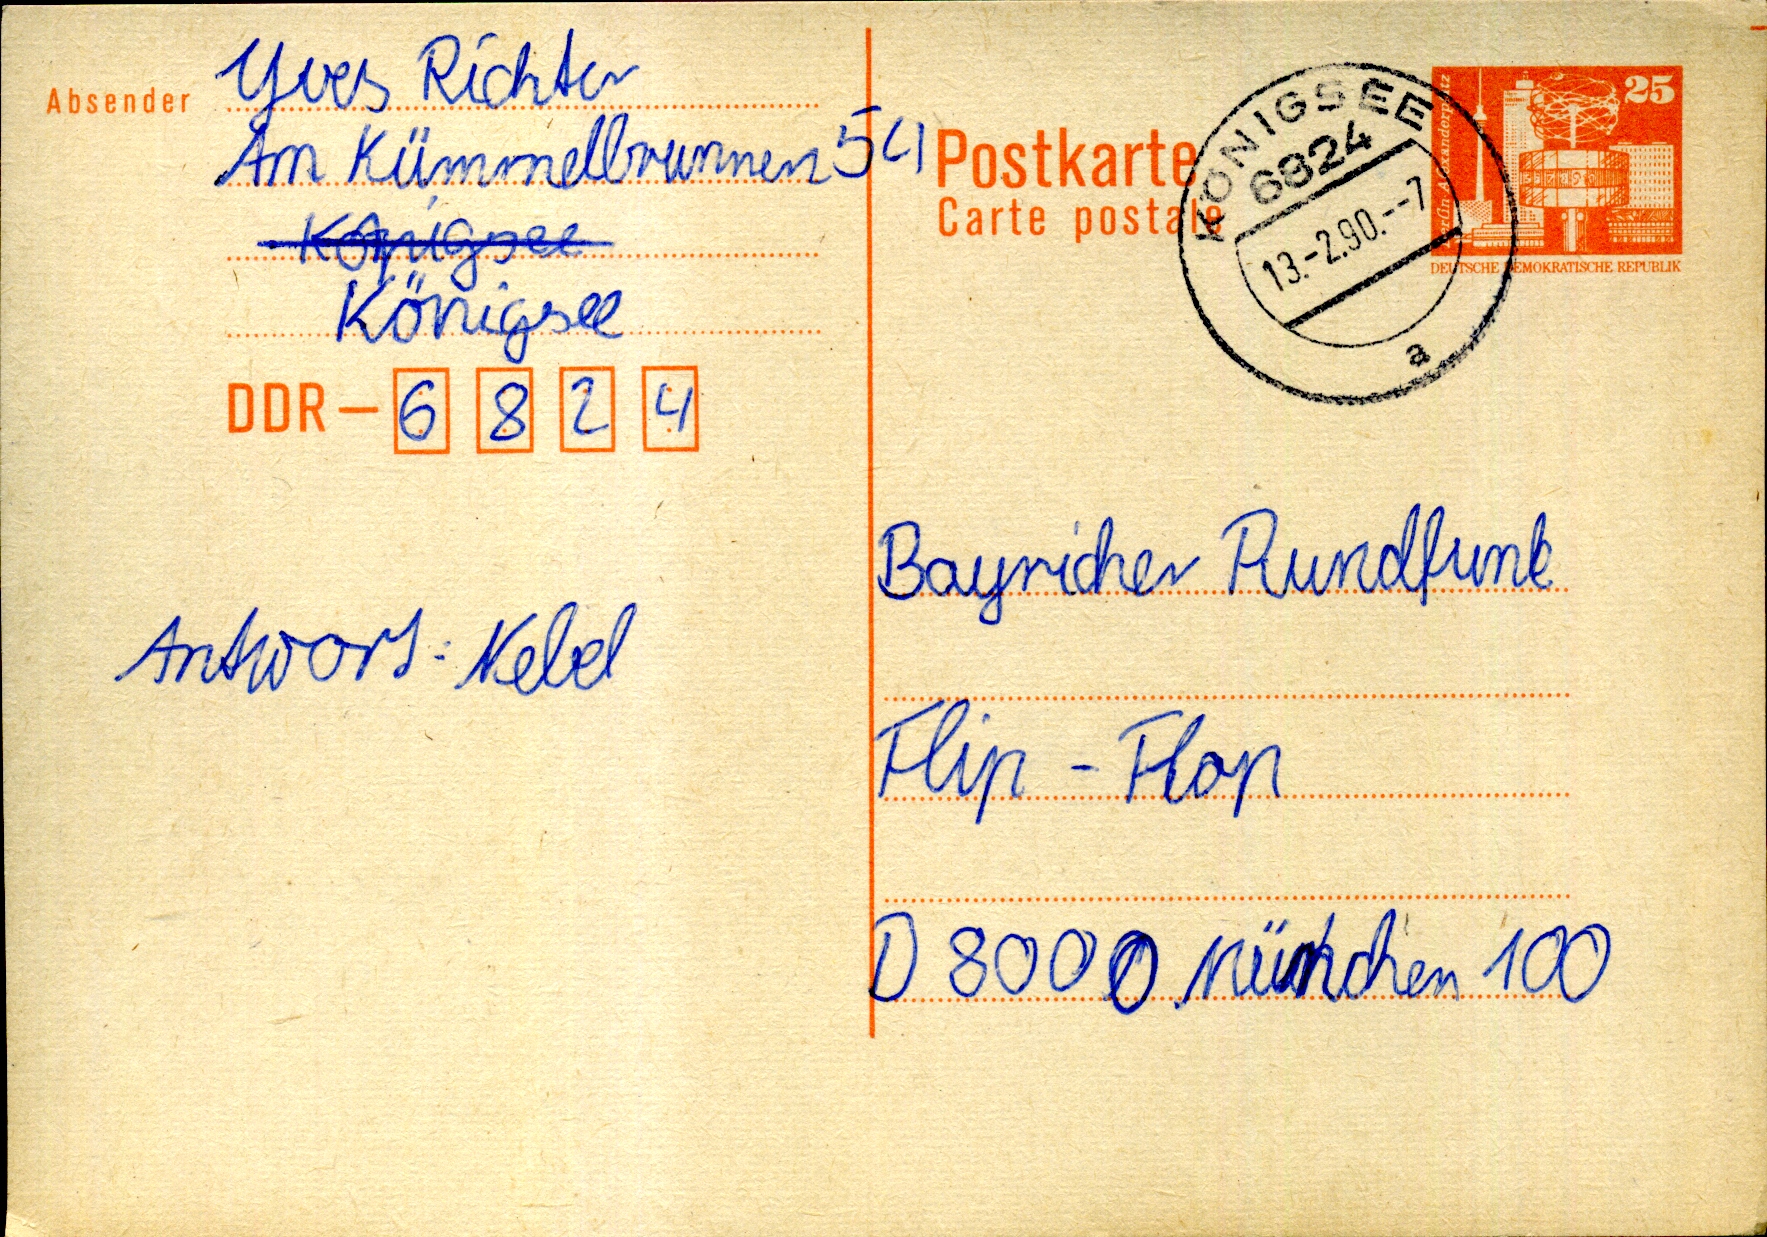 Absender Yves Richter
Am Kümmelbrunnen 54
Königsee
Königsee
DDR – 6 8 2 4
Antwort: Nebel
Postkarte
Carte postale
KÖNIGSEE
6824
13.-2.90.--7
a
25
Berlin-Alexanderplatz
DEUTSCHE DEMOKRATISCHE REPUBLIK
Bayricher Rundfunk
Flip - Flop
D 8000 München 100